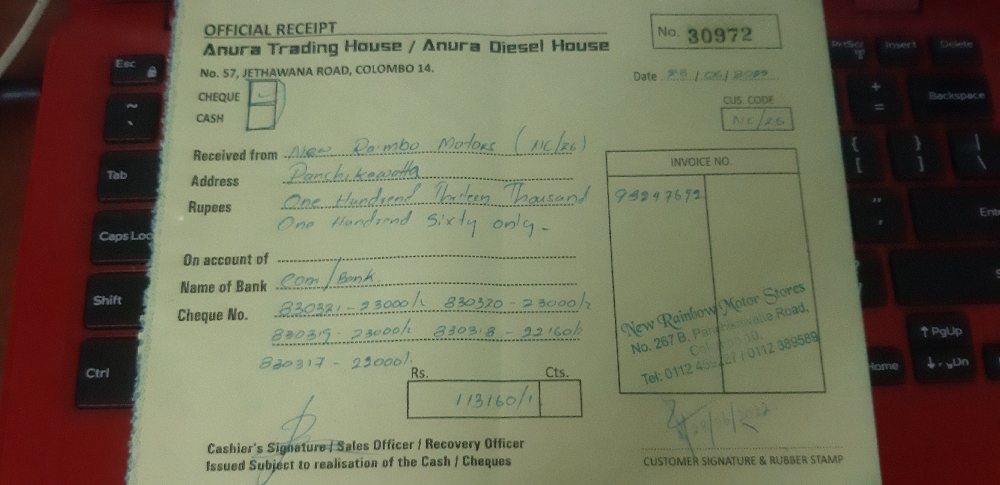 OFFICIAL RECEIPT
Anura Trading House / Anura Diesel House
No. 57, JETHAWANA ROAD, COLOMBO 14.
No. 30972
Date 28 / 06 / 2022
CHEQUE ✓
CASH
CUS. CODE
NC/26
Received from New Rainbo Motors (NC/26)
Address Panchikawatta
Rupees One Hundrend Thirteen Thousand
One Hundrend Sixty only -
On account of
Name of Bank Com/Bank
Cheque No. 830321 - 23000/- 830320 - 23000/-
830319 - 23000/- 830318 - 22160/-
830317 - 22000/-
INVOICE NO.
New Rainbow Motor Stores
No. 267 B, Panchikawatte Road,
Tel: 0112 / 0112 389589
Rs. Cts.
113160/-
28/06/2022
Cashier's Signature / Sales Officer / Recovery Officer
Issued Subject to realisation of the Cash / Cheques
CUSTOMER SIGNATURE & RUBBER STAMP
Esc
~
`
Tab
Caps Loc
Shift
Ctrl
PrtScr
Insert
Delete
+
=
Backspace
{
[
}
]
Ente
PgUp
Home